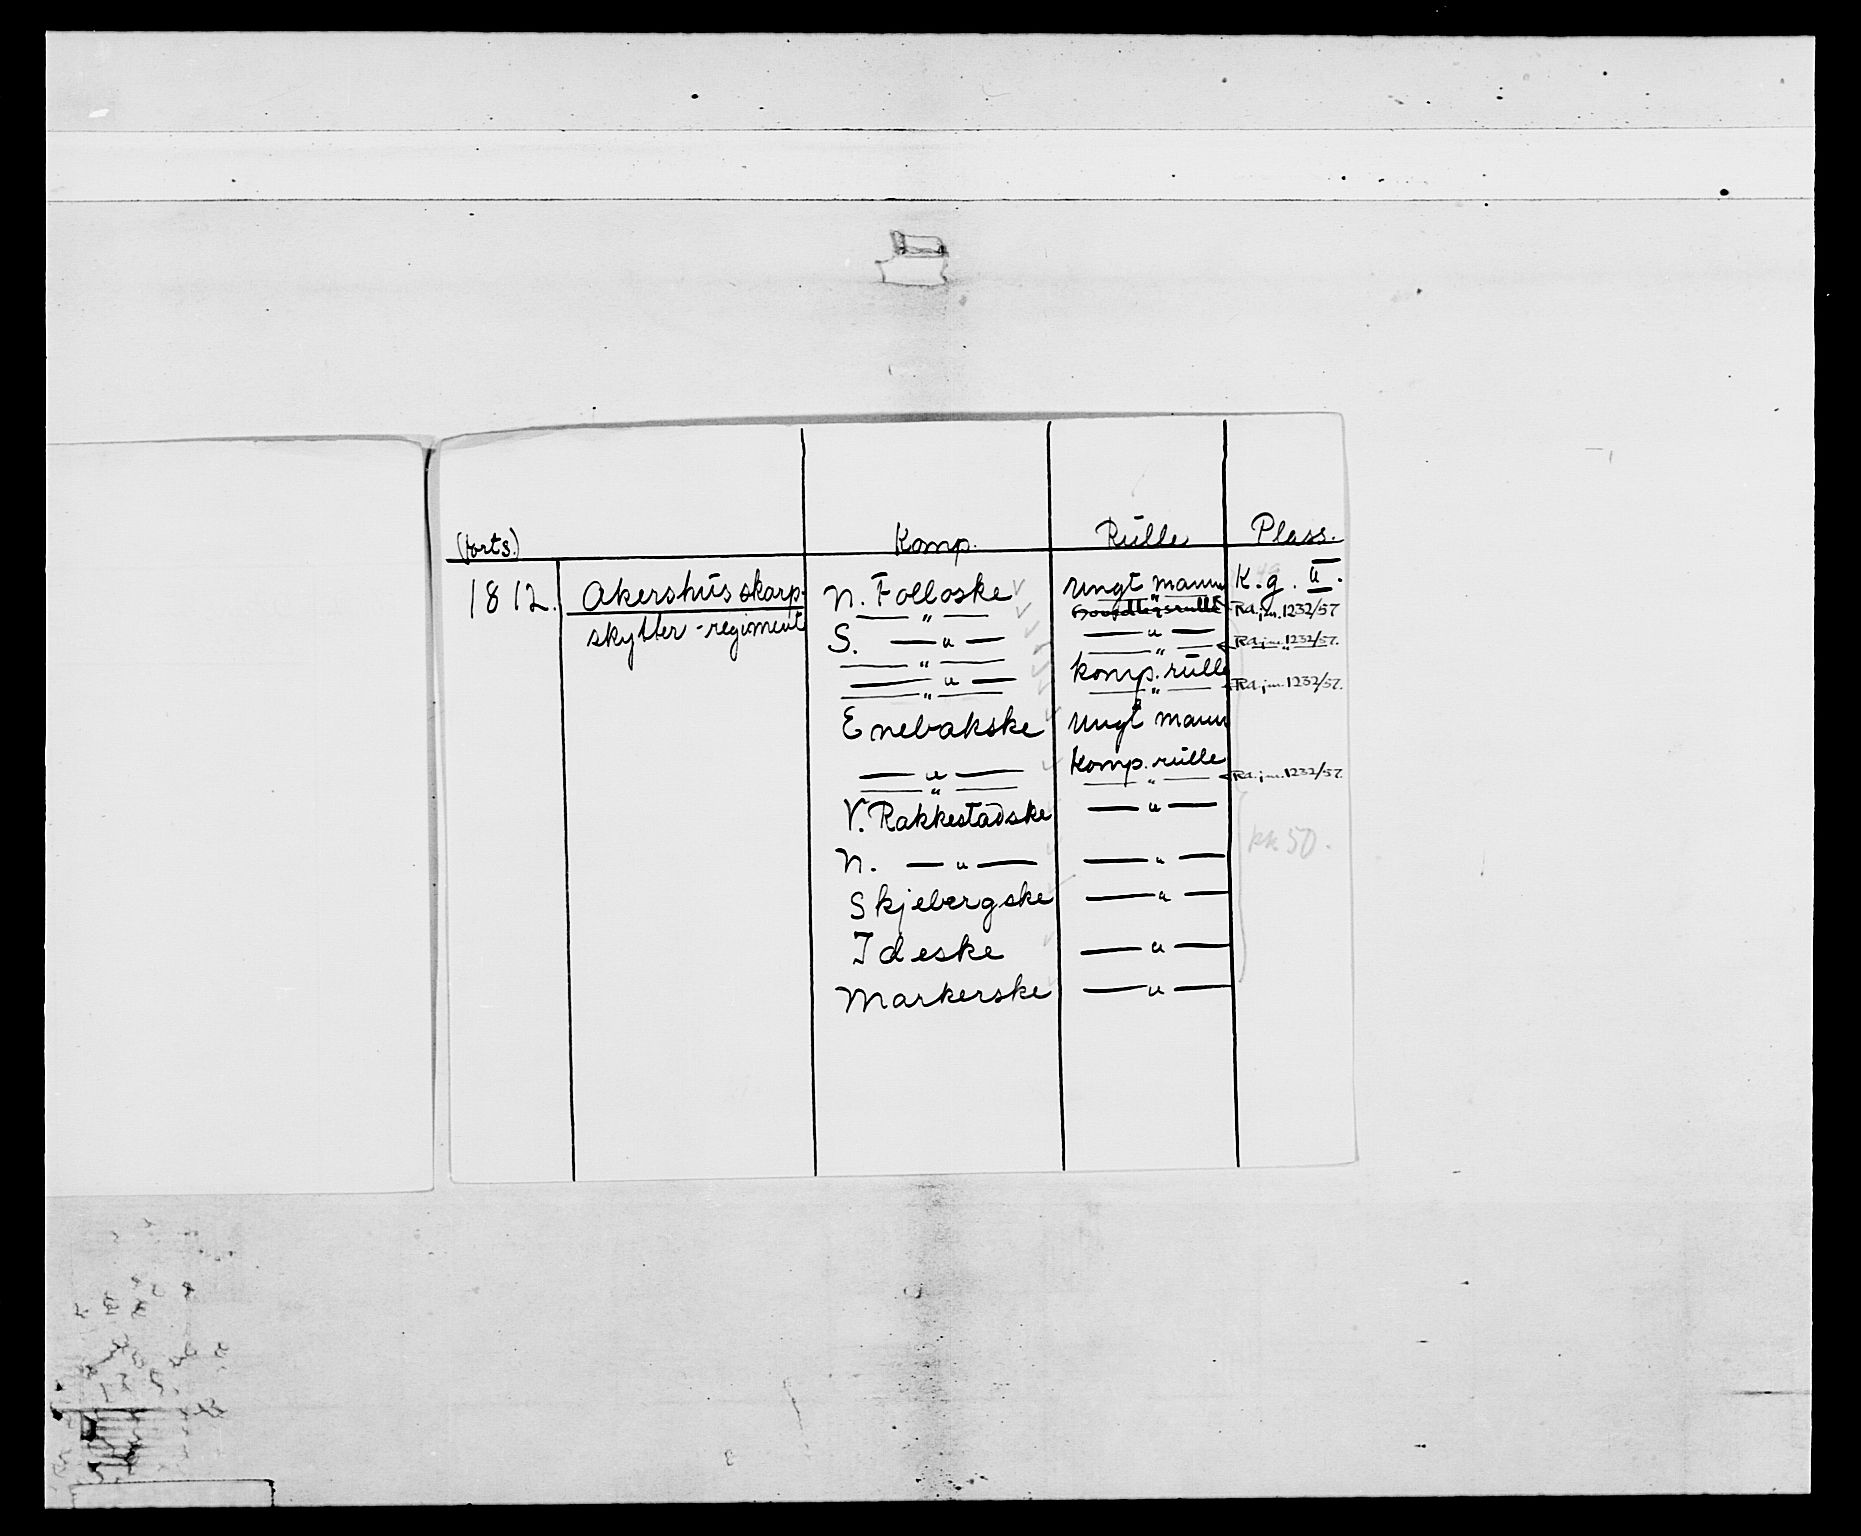 (forts.) Komp. Rulle Plass.
1812. Akershus skarp- N. Folloske Ungt mann K.g. II.
skytter-regiment — " — — " — Rd.jnr. 1232/57
S. — " — — " —
— " — — " — Rd.jnr. 1232/57.
— " — Komp. rulle
— " — — " — Rd.jnr. 1232/57.
Enebakske Ungt mann
— " — Komp. rulle
— " — — " — Rd.jnr. 1232/57.
V. Rakkestadske — " —
N. — " — — " — pk 50.
Skjebergske — " —
Ideske — " —
Markerske — " —